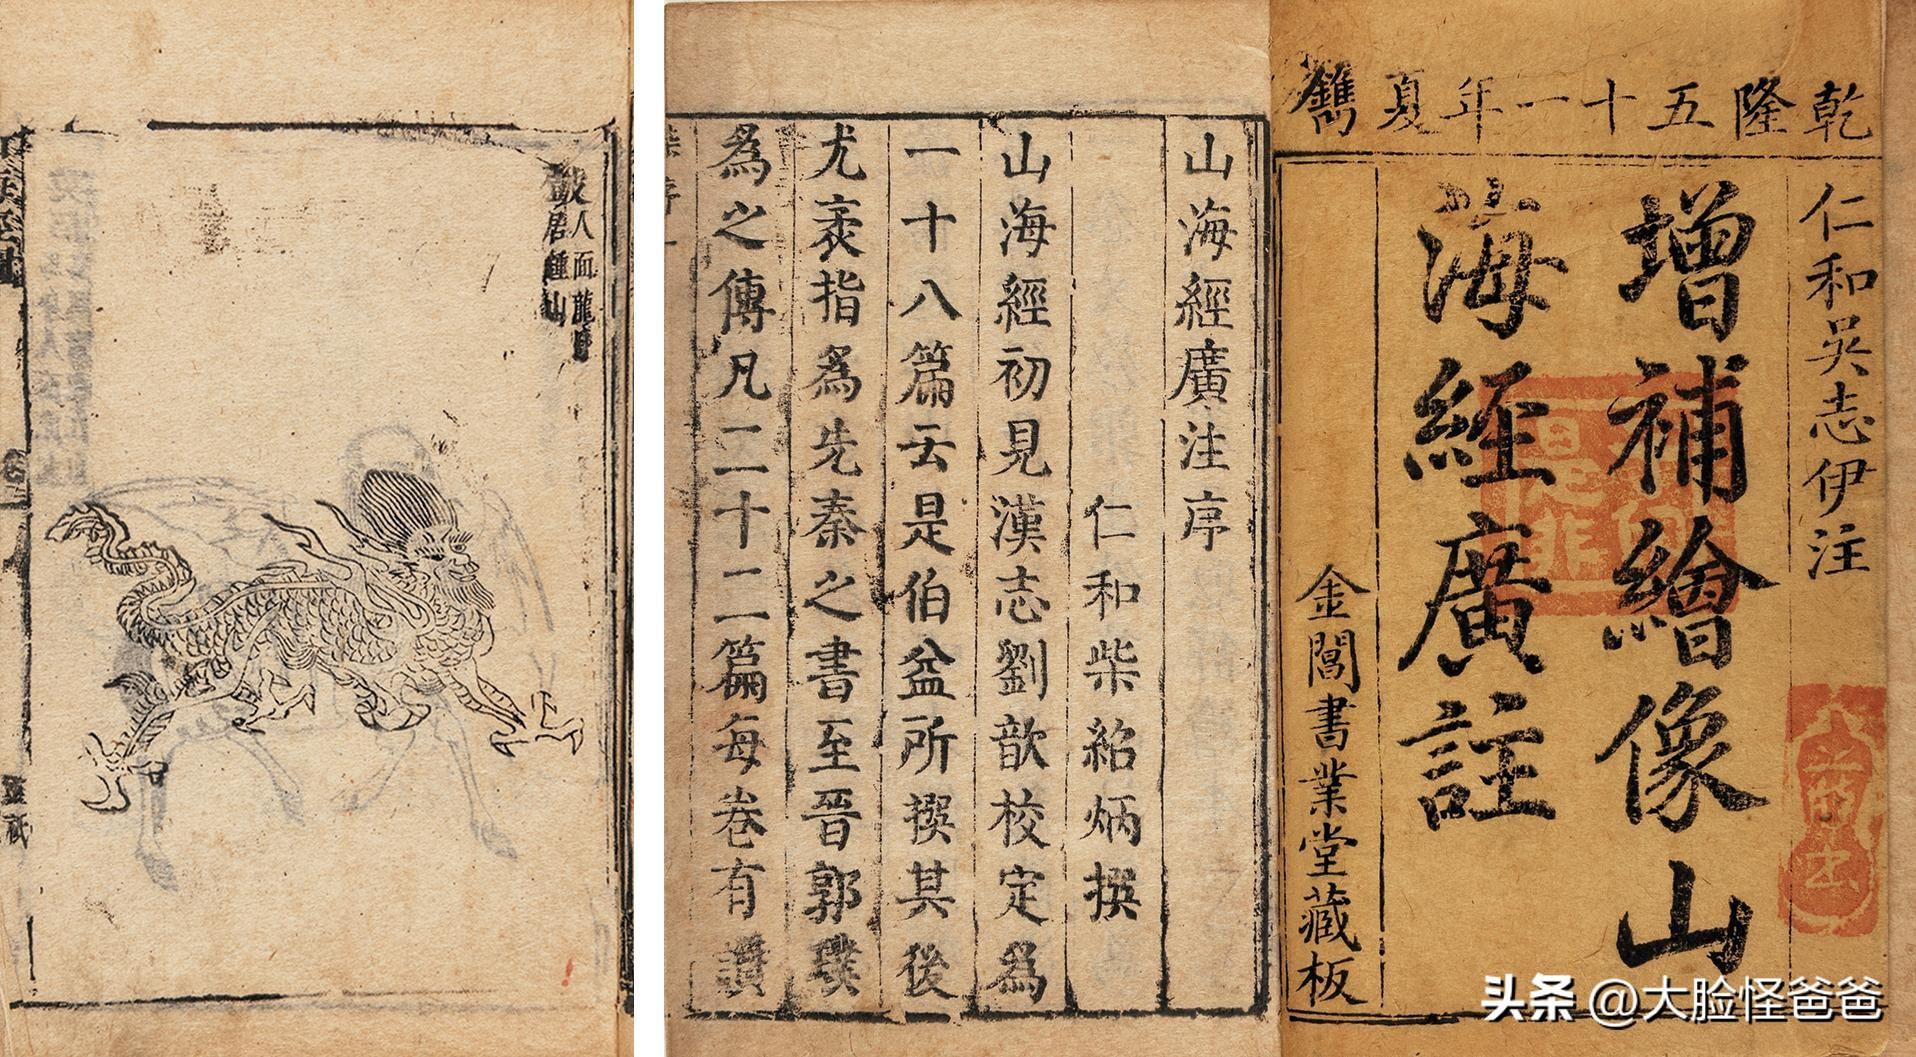 乾隆五十一年夏鐫
仁和吳志伊注
增補繪像山
海經廣註
金閶書業堂藏板
山海經廣注序
仁和柴紹炳撰
山海經初見漢志劉歆校定為
一十八篇云是伯益所撰其後
尤袤指為先秦之書至晉郭璞
為之傳凡二十二篇每卷有讚
人面龍身
居鍾山
头条 @大脸怪爸爸